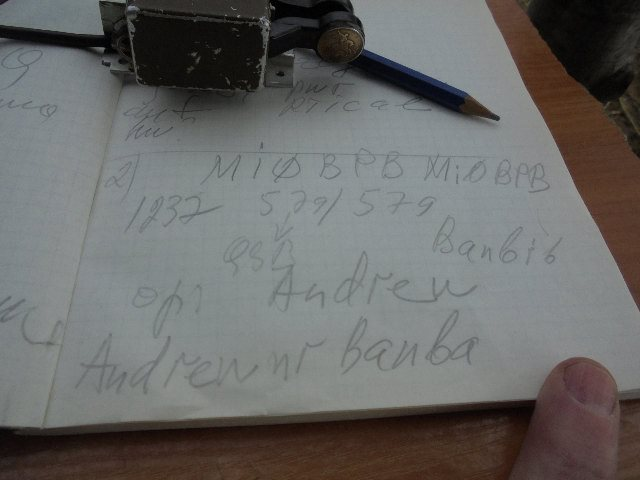 RTICAL
2) MIØBPB MIØBPB
1237 579/579
QSL Banbib
op Andrew
Andrew nr Banba